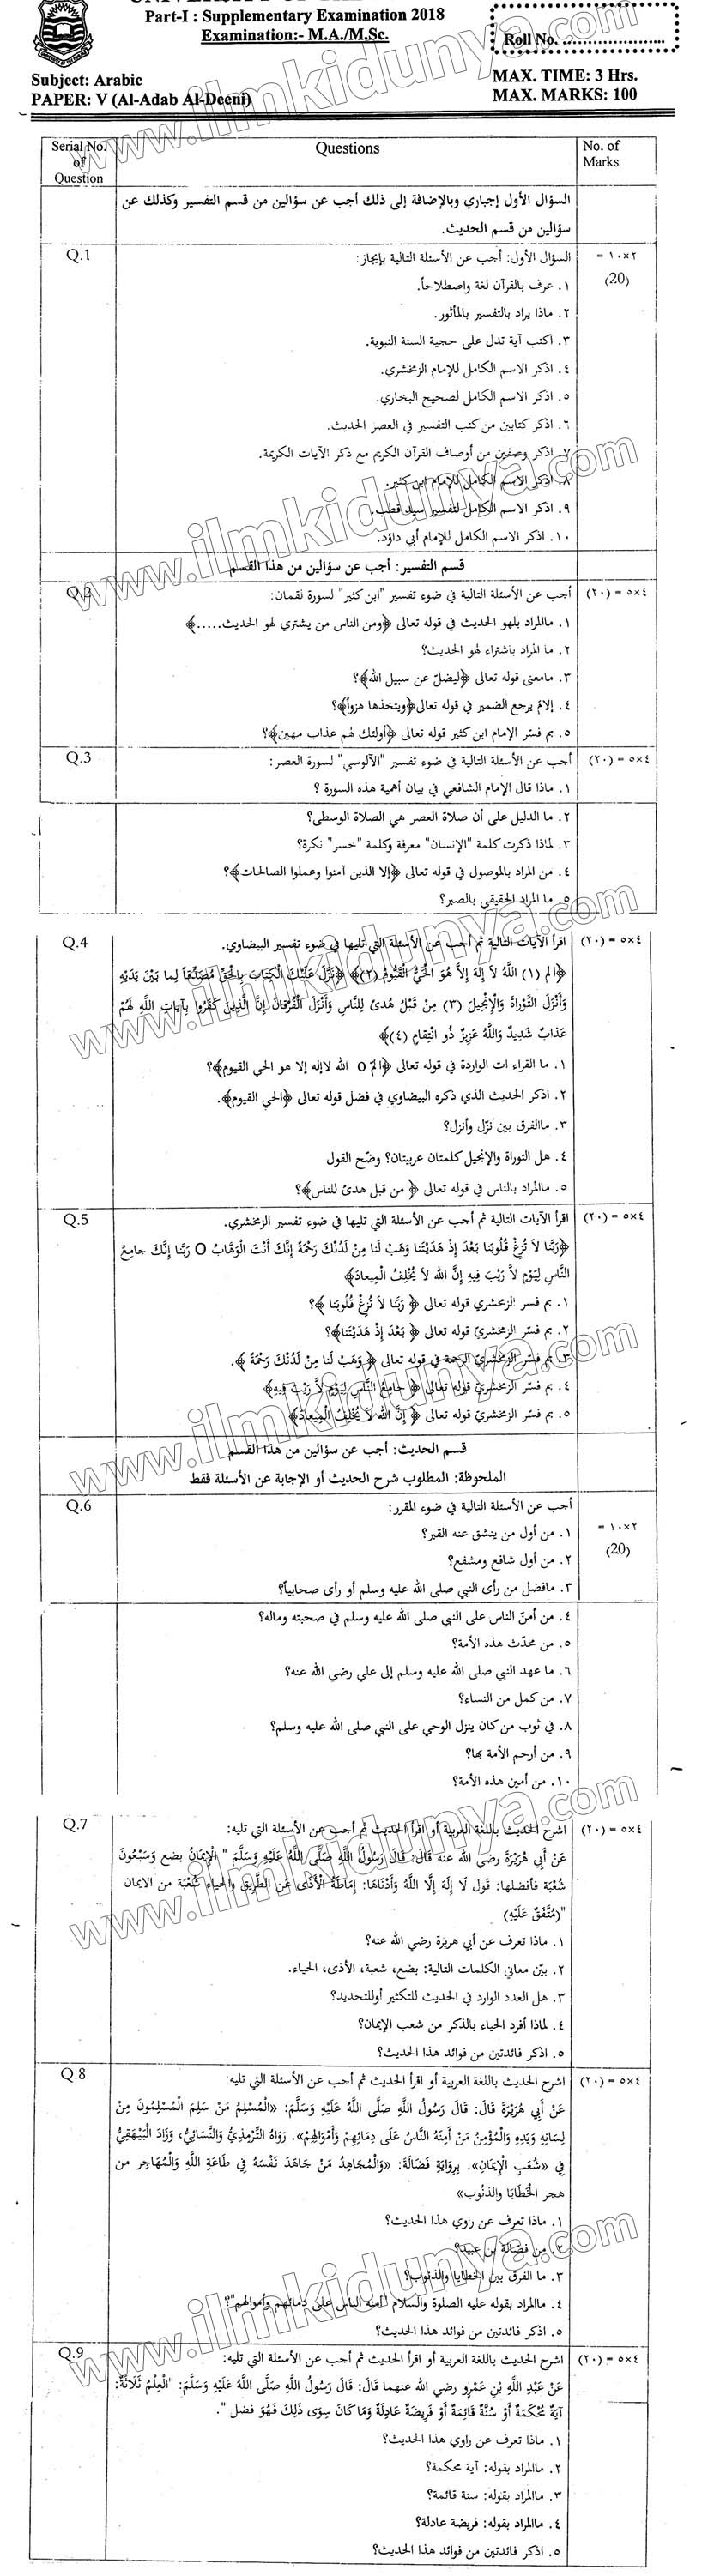 Part-I : Supplementary Examination 2018
Examination:- M.A./M.Sc.
Roll No. ........................
Subject: Arabic
PAPER: V (Al-Adab Al-Deeni)
MAX. TIME: 3 Hrs.
MAX. MARKS: 100
Serial No. of Question
Questions
No. of Marks
السؤال الأول إجباري وبالإضافة إلى ذلك أجب عن سؤالين من قسم التفسير وكذلك عن
سؤالين من قسم الحديث.
Q.1
السؤال الأول: أجب عن الأسئلة التالية بإيجاز:
١٠×٢ =
(20)
١. عرف بالقرآن لغة واصطلاحاً.
٢. ماذا يراد بالتفسير بالمأثور.
٣. اكتب آية تدل على حجية السنة النبوية.
٤. اذكر الاسم الكامل للإمام الزمخشري.
٥. اذكر الاسم الكامل لصحيح البخاري.
٦. اذكر كتابين من كتب التفسير في العصر الحديث.
٧. اذكر وصفين من أوصاف القرآن الكريم مع ذكر الآيات الكريمة.
٨. اذكر الاسم الكامل للإمام ابن كثير.
٩. اذكر الاسم الكامل لتفسير سيد قطب.
١٠. اذكر الاسم الكامل للإمام أبي داؤد.
قسم التفسير: أجب عن سؤالين من هذا القسم
Q.2
أجب عن الأسئلة التالية في ضوء تفسير "ابن كثير" لسورة لقمان:
٥×٤ = (٢٠)
١. ماالمراد بلهو الحديث في قوله تعالى ﴿ومن الناس من يشتري لهو الحديث.....﴾
٢. ما المراد باشتراء لهو الحديث؟
٣. مامعنى قوله تعالى ﴿ليضلّ عن سبيل الله﴾؟
٤. إلام يرجع الضمير في قوله تعالى﴿ويتخذها هزواً﴾؟
٥. بم فسّر الإمام ابن كثير قوله تعالى ﴿أولئك لهم عذاب مهين﴾؟
Q.3
أجب عن الأسئلة التالية في ضوء تفسير "الآلوسي" لسورة العصر:
٥×٤ = (٢٠)
١. ماذا قال الإمام الشافعي في بيان أهمية هذه السورة ؟
٢. ما الدليل على أن صلاة العصر هي الصلاة الوسطى؟
٣. لماذا ذكرت كلمة "الإنسان" معرفة وكلمة "خسر" نكرة؟
٤. من المراد بالموصول في قوله تعالى ﴿إلا الذين آمنوا وعملوا الصالحات﴾؟
٥. ما المراد الحقيقي بالصبر؟
Q.4
اقرأ الآيات التالية ثم أجب عن الأسئلة التي تليها في ضوء تفسير البيضاوي.
٥×٤ = (٢٠)
﴿الم (١) اللَّهُ لاَ إِلَهَ إِلاَّ هُوَ الْحَيُّ الْقَيُّومُ (٢)﴾ ﴿نَزَّلَ عَلَيْكَ الْكِتَابَ بِالْحَقِّ مُصَدِّقاً لِما بَيْنَ يَدَيْهِ
وَأَنْزَلَ التَّوْراةَ وَالْإِنْجِيلَ (٣) مِنْ قَبْلُ هُدىً لِلنَّاسِ وَأَنْزَلَ الْفُرْقانَ إِنَّ الَّذِينَ كَفَرُوا بِآياتِ اللَّهِ لَهُمْ
عَذابٌ شَدِيدٌ وَاللَّهُ عَزِيزٌ ذُو انْتِقامٍ (٤)﴾
١. ما القراء ات الواردة في قوله تعالى ﴿المّ o الله لاإله إلا هو الحي القيوم﴾؟
٢. اذكر الحديث الذي ذكره البيضاوي في فضل قوله تعالى ﴿الحي القيوم﴾.
٣. ماالفرق بين نزّل وأنزل؟
٤. هل التوراة والإنجيل كلمتان عربيتان؟ وضّح القول
٥. ماالمراد بالناس في قوله تعالى ﴿ من قبل هدىً للناس﴾؟
Q.5
اقرأ الآيات التالية ثم أجب عن الأسئلة التي تليها في ضوء تفسير الزمخشري.
٥×٤ = (٢٠)
﴿رَبَّنا لاَ تُزِغْ قُلُوبَنا بَعْدَ إِذْ هَدَيْتَنا وَهَبْ لَنا مِنْ لَدُنْكَ رَحْمَةً إِنَّكَ أَنْتَ الْوَهَّابُ O رَبَّنا إِنَّكَ جامِعُ
النَّاسِ لِيَوْمٍ لاَّ رَيْبَ فِيهِ إِنَّ اللهَ لاَ يُخْلِفُ الْمِيعادَ﴾
١. بم فسر الزمخشري قوله تعالى ﴿ رَبَّنا لاَ تُزِغْ قُلُوبَنا ﴾؟
٢. بم فسّر الزمخشريّ قوله تعالى ﴿ بَعْدَ إِذْ هَدَيْتَنا﴾؟
٣. بم فسّر الزمخشريّ الرحمة في قوله تعالى ﴿ وَهَبْ لَنا مِنْ لَدُنْكَ رَحْمَةً ﴾.
٤. بم فسّر الزمخشريّ قوله تعالى ﴿ جامِعُ النَّاسِ لِيَوْمٍ لاَّ رَيْبَ فِيهِ﴾
٥. بم فسّر الزمخشريّ قوله تعالى ﴿ إِنَّ اللهَ لاَ يُخْلِفُ الْمِيعادَ﴾
قسم الحديث: أجب عن سؤالين من هذا القسم
الملحوظة: المطلوب شرح الحديث أو الإجابة عن الأسئلة فقط
Q.6
أجب عن الأسئلة التالية في ضوء المقرر:
١٠×٢ =
(20)
١. من أول من ينشق عنه القبر؟
٢. من أول شافع ومشفع؟
٣. مافضل من رأى النبي صلى الله عليه وسلم أو رأى صحابياً؟
٤. من أمنّ الناس على النبي صلى الله عليه وسلم في صحبته وماله؟
٥. من محدّث هذه الأمة؟
٦. ما عهد النبي صلى الله عليه وسلم إلى علي رضي الله عنه؟
٧. من كمل من النساء؟
٨. في ثوب من كان ينزل الوحي على النبي صلى الله عليه وسلم؟
٩. من أرحم الأمة بها؟
١٠. من أمين هذه الأمة؟
Q.7
اشرح الحديث باللغة العربية أو اقرأ الحديث ثم أجب عن الأسئلة التي تليه:
٥×٤ = (٢٠)
عَنْ أَبِي هُرَيْرَةَ رضي الله عنه قَالَ: قَالَ رَسُولُ اللَّهِ صَلَّى اللَّهُ عَلَيْهِ وَسَلَّمَ " الْإِيمَانُ بضع وَسَبْعُونَ
شُعْبَة فأفضلها: قول لَا إِلَهَ إِلَّا اللَّهُ وَأَدْنَاهَا: إِمَاطَةُ الْأَذَى عَنِ الطَّرِيقِ والحياء شُعْبَة من الايمان
"(مُتَّفَقٌ عَلَيْهِ)
١. ماذا تعرف عن أبي هريرة رضي الله عنه؟
٢. بيّن معاني الكلمات التالية: بضع، شعبة، الأذى، الحياء.
٣. هل العدد الوارد في الحديث للتكثير أوللتحديد؟
٤. لماذا أفرد الحياء بالذكر من شعب الإيمان؟
٥. اذكر فائدتين من فوائد هذا الحديث؟
Q.8
اشرح الحديث باللغة العربية أو اقرأ الحديث ثم أجب عن الأسئلة التي تليه:
٥×٤ = (٢٠)
عَنْ أَبِي هُرَيْرَةَ قَالَ: قَالَ رَسُولُ اللَّهِ صَلَّى اللَّهُ عَلَيْهِ وَسَلَّمَ: «الْمُسْلِمُ مَنْ سَلِمَ الْمُسْلِمُونَ مِنْ
لِسَانِهِ وَيَدِهِ وَالْمُؤْمِنُ مَنْ أَمِنَهُ النَّاسُ عَلَى دِمَائِهِمْ وَأَمْوَالِهِمْ». رَوَاهُ التِّرْمِذِيُّ وَالنَّسَائِيُّ، وَزَادَ الْبَيْهَقِيُّ
فِي «شُعَبِ الْإِيمَانِ». بِرِوَايَةِ فَضَالَةَ: «وَالْمُجَاهِدُ مَنْ جَاهَدَ نَفْسَهُ فِي طَاعَةِ اللَّهِ وَالْمُهَاجِر من
هجر الْخَطَايَا والذنُوب»
١. ماذا تعرف عن روي هذا الحديث؟
٢. من فضالة بن عبيد؟
٣. ما الفرق بين الخطايا والذنوب؟
٤. ماالمراد بقوله عليه الصلوة والسلام "أمنه الناس على دمائهم وأموالهم"؟
٥. اذكر فائدتين من فوائد هذا الحديث؟
Q.9
اشرح الحديث باللغة العربية أو اقرأ الحديث ثم أجب عن الأسئلة التي تليه:
٥×٤ = (٢٠)
عَنْ عَبْدِ اللَّهِ بْنِ عَمْرٍو رضي الله عنهما قَالَ: قَالَ رَسُولُ اللَّهِ صَلَّى اللَّهُ عَلَيْهِ وَسَلَّمَ: "الْعِلْمُ ثَلَاثَةٌ:
آيَةٌ مُحْكَمَةٌ أَوْ سُنَّةٌ قَائِمَةٌ أَوْ فَرِيضَةٌ عَادِلَةٌ وَمَا كَانَ سِوَى ذَلِكَ فَهُوَ فضل ".
١. ماذا تعرف عن راوي هذا الحديث؟
٢. ماالمراد بقوله: آية محكمة؟
٣. ماالمراد بقوله: سنة قائمة؟
٤. ماالمراد بقوله: فريضة عادلة؟
٥. اذكر فائدتين من فوائد هذا الحديث؟
www.ilmkidunya.com
www.ilmkidunya.com
www.ilmkidunya.com
www.ilmkidunya.com
www.ilmkidunya.com
www.ilmkidunya.com